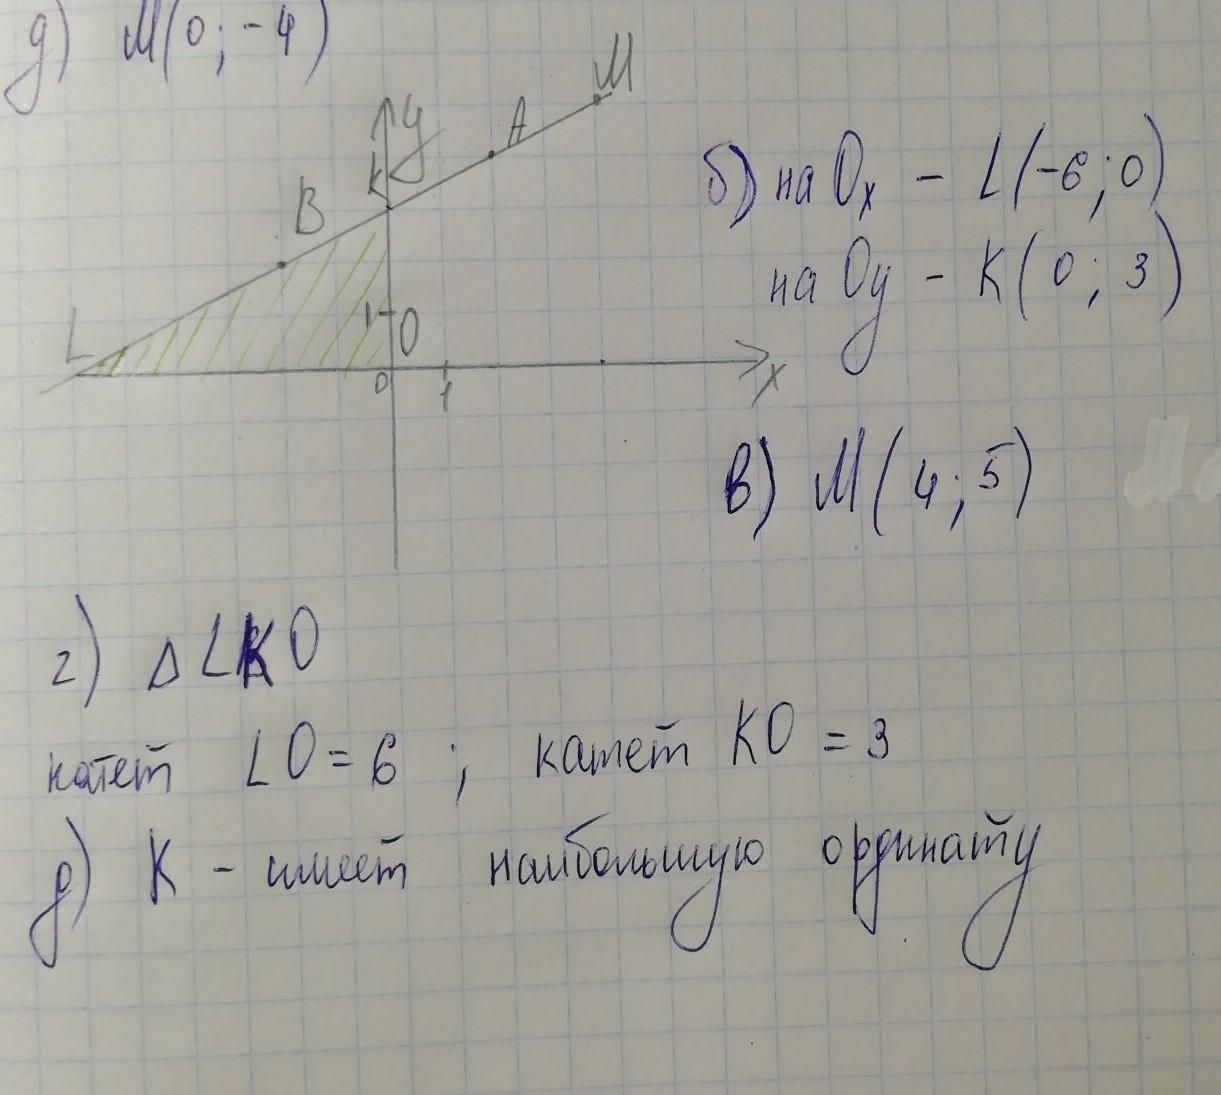 д) M(0; -4)
M
y
A
K
б) на Ox - L(-6; 0)
B
на Oy - K(0; 3)
1
O
L
0
1
x
в) M(4; 5)
г) Δ LKO
катет LO = 6 ; катет KO = 3
д) K - имеет наибольшую ординату